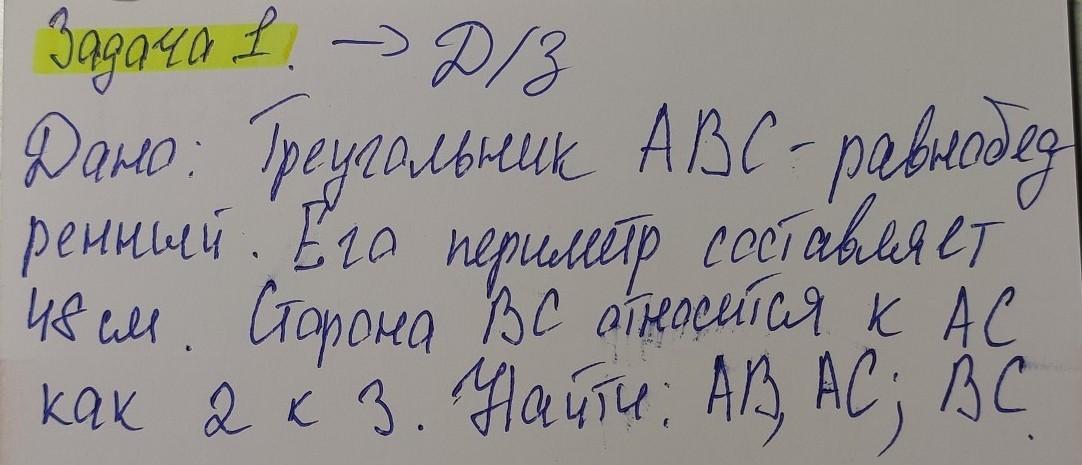 Задача 1. → Д/З
Дано: Треугольник ABC - равнобед
ренный. Его периметр составляет
48 см. Сторона BC относится к AC
как 2 к 3. Найти: AB, AC; BC.